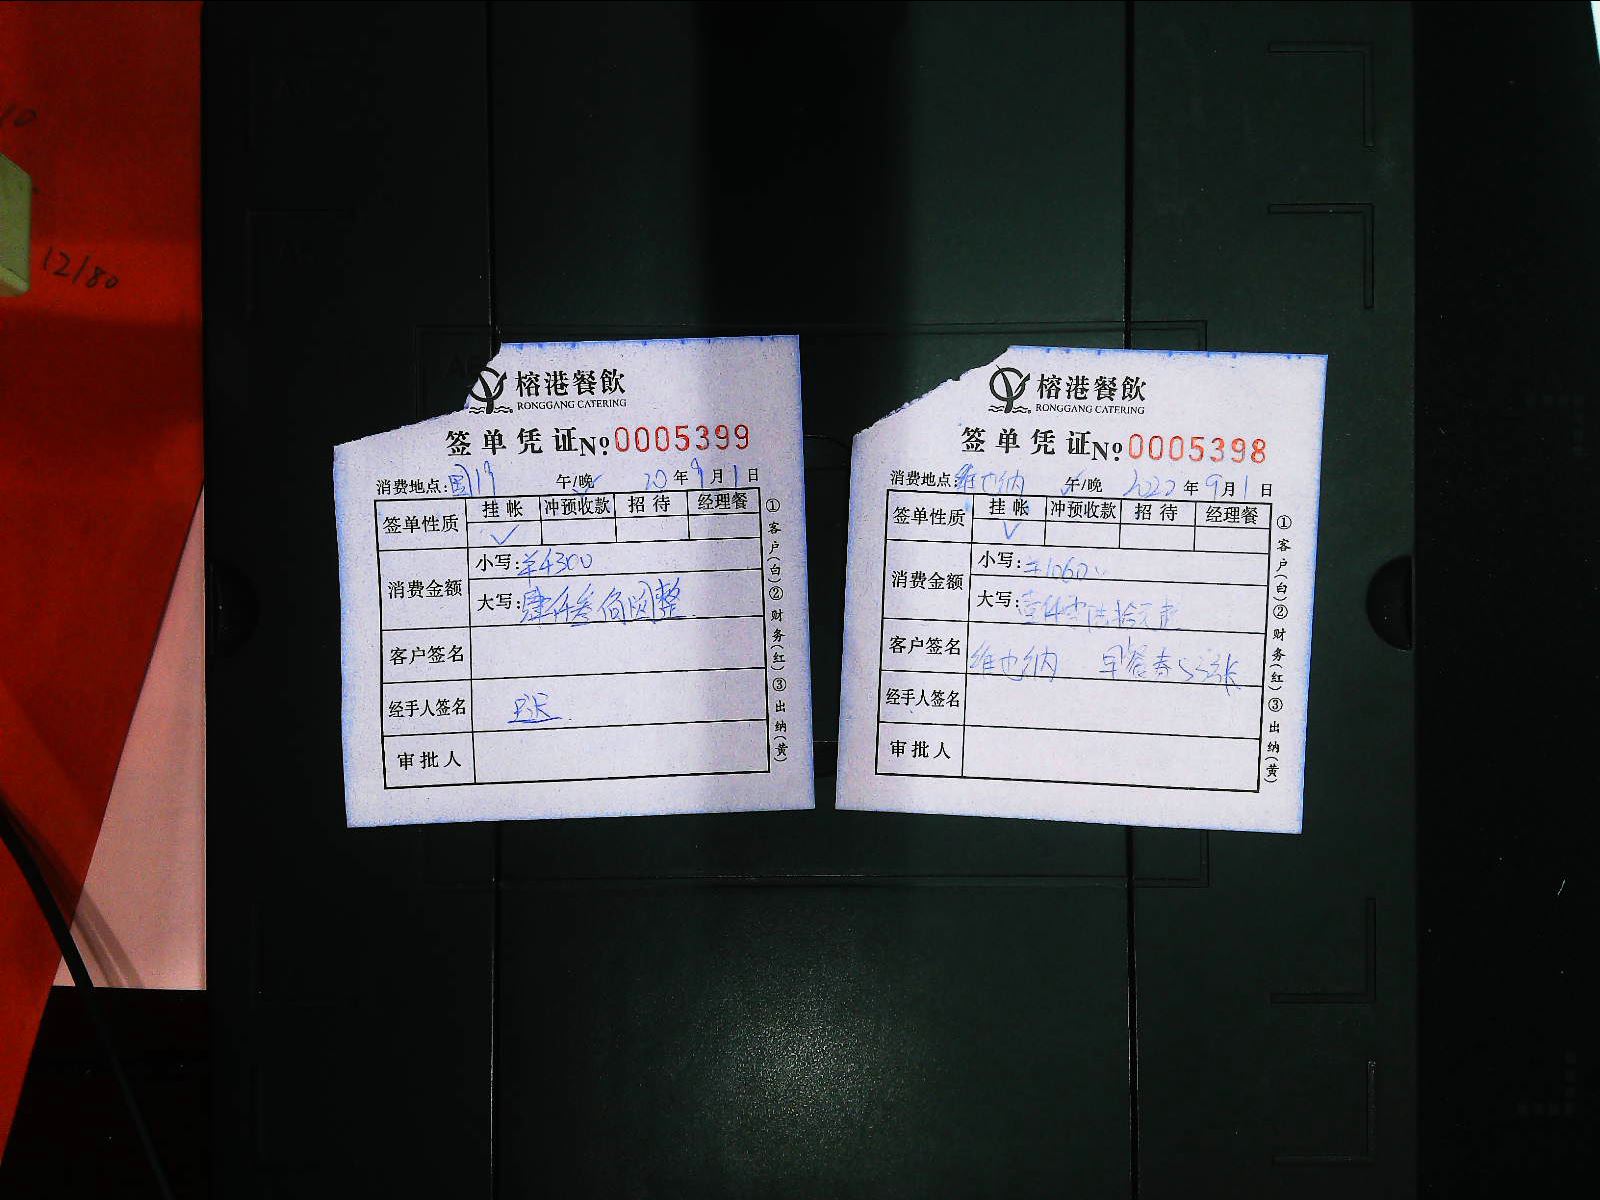 12/80
榕港餐飲
RONGGANG CATERING
签单凭证 №0005399
消费地点: 午/晚 20年9月1日
签单性质 挂帐 冲预收款 招待 经理餐
✓
消费金额 小写:¥4300
大写:肆仟叁佰圆整
客户签名
经手人签名
审批人
①客户(白)②财务(红)③出纳(黄)
榕港餐飲
RONGGANG CATERING
签单凭证 №0005398
消费地点:维也纳 午/晚 2020年9月1日
签单性质 挂帐 冲预收款 招待 经理餐
✓
消费金额 小写:¥1060
大写:壹仟零陆拾元整
客户签名 维也纳 早餐券53张
经手人签名
审批人
①客户(白)②财务(红)③出纳(黄)